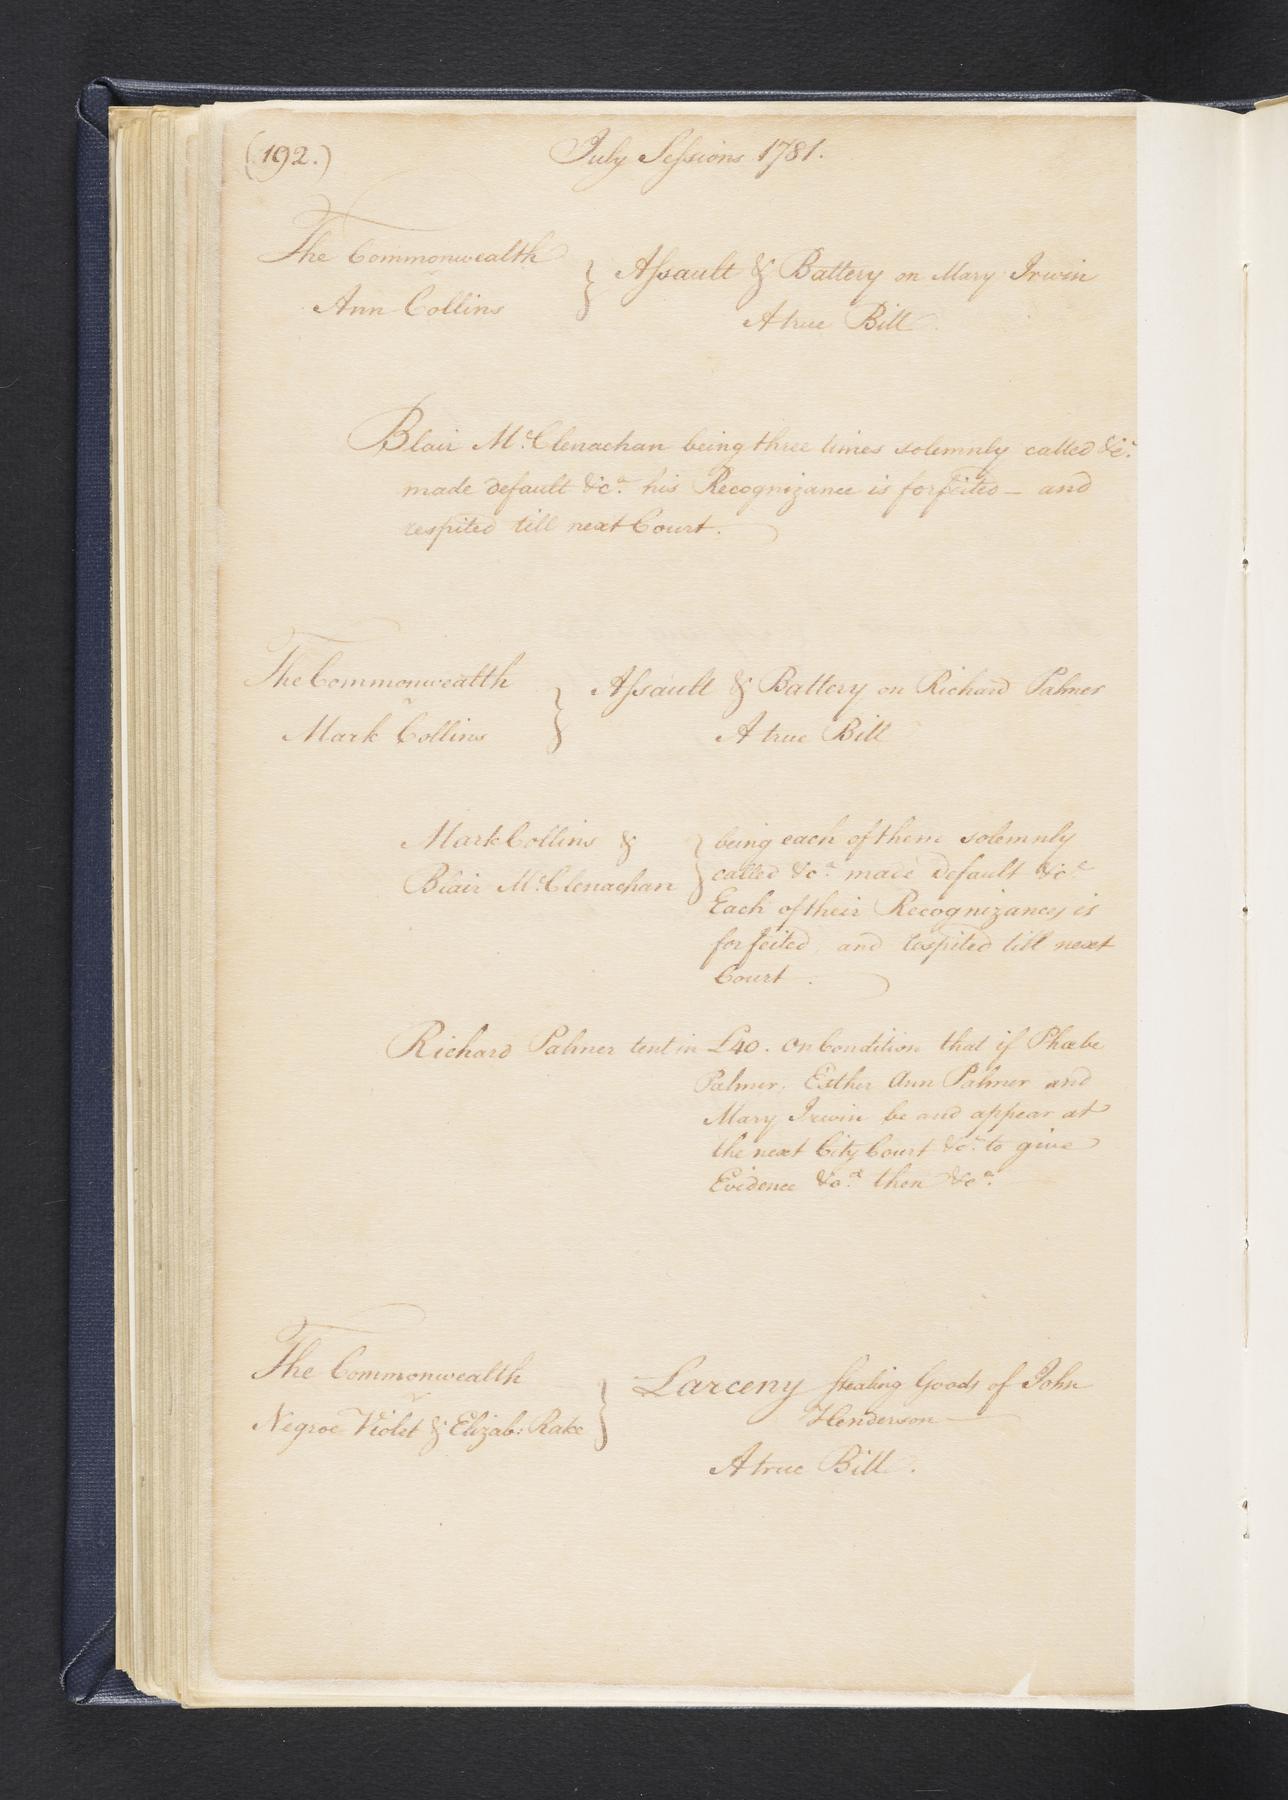 (192.)
July Sessions 1781.
The Commonwealth
v
Ann Collins
} Assault & Battery on Mary Irwin
A true Bill
Blair McClenachan being three times solemnly called &ca.
made default &ca. his Recognizance is forfeited – and
respited till next Court.
The Commonwealth
v
Mark Collins
} Assault & Battery on Richard Palmer
A true Bill
Mark Collins &
Blair McClenachan
} being each of them solemnly
called &ca. made default &ca.
Each of their Recognizances is
forfeited and respited till next
Court.
Richard Palmer tent in £40. On Condition that if Phœbe
Palmer, Esther Ann Palmer and
Mary Irwin be and appear at
the next City Court &ca. to give
Evidence &ca. then &ca.
The Commonwealth
v
Negroe Violet & Elizab: Rake
} Larceny stealing Goods of John
Henderson —
A true Bill.